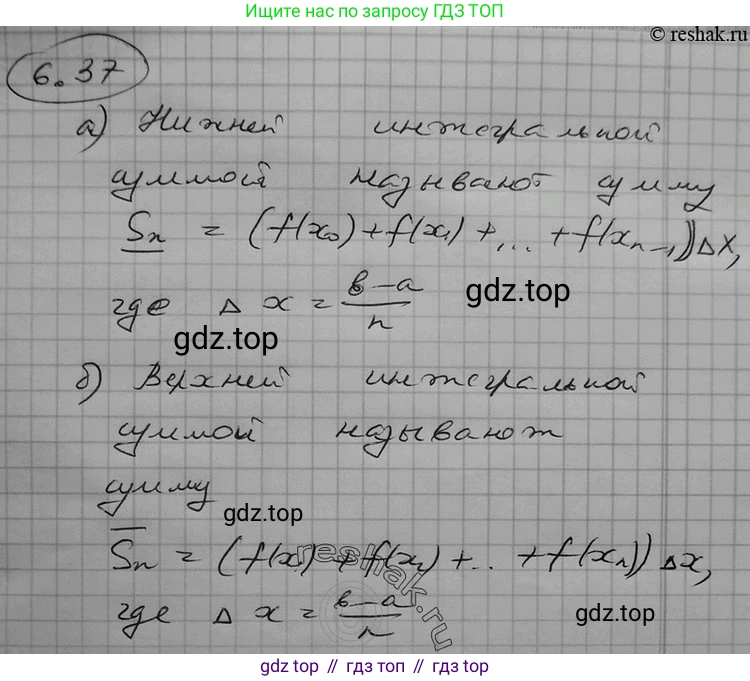 Ищите нас по запросу ГДЗ ТОП
© reshak.ru
6.37
а) Нижней интегральной
суммой называют сумму
Sn = (f(x₀)+f(x₁)+...+f(xn-1))Δx,
где Δx = (в-a)/n
gdz.top
gdz.top
б) Верхней интегральной
суммой называют
сумму
gdz.top
S̅n = (f(x₁)+f(x₂)+..+f(xn))Δx,
reshak.ru
где Δx = (в-a)/n
gdz.top
gdz top // гдз топ // gdz top